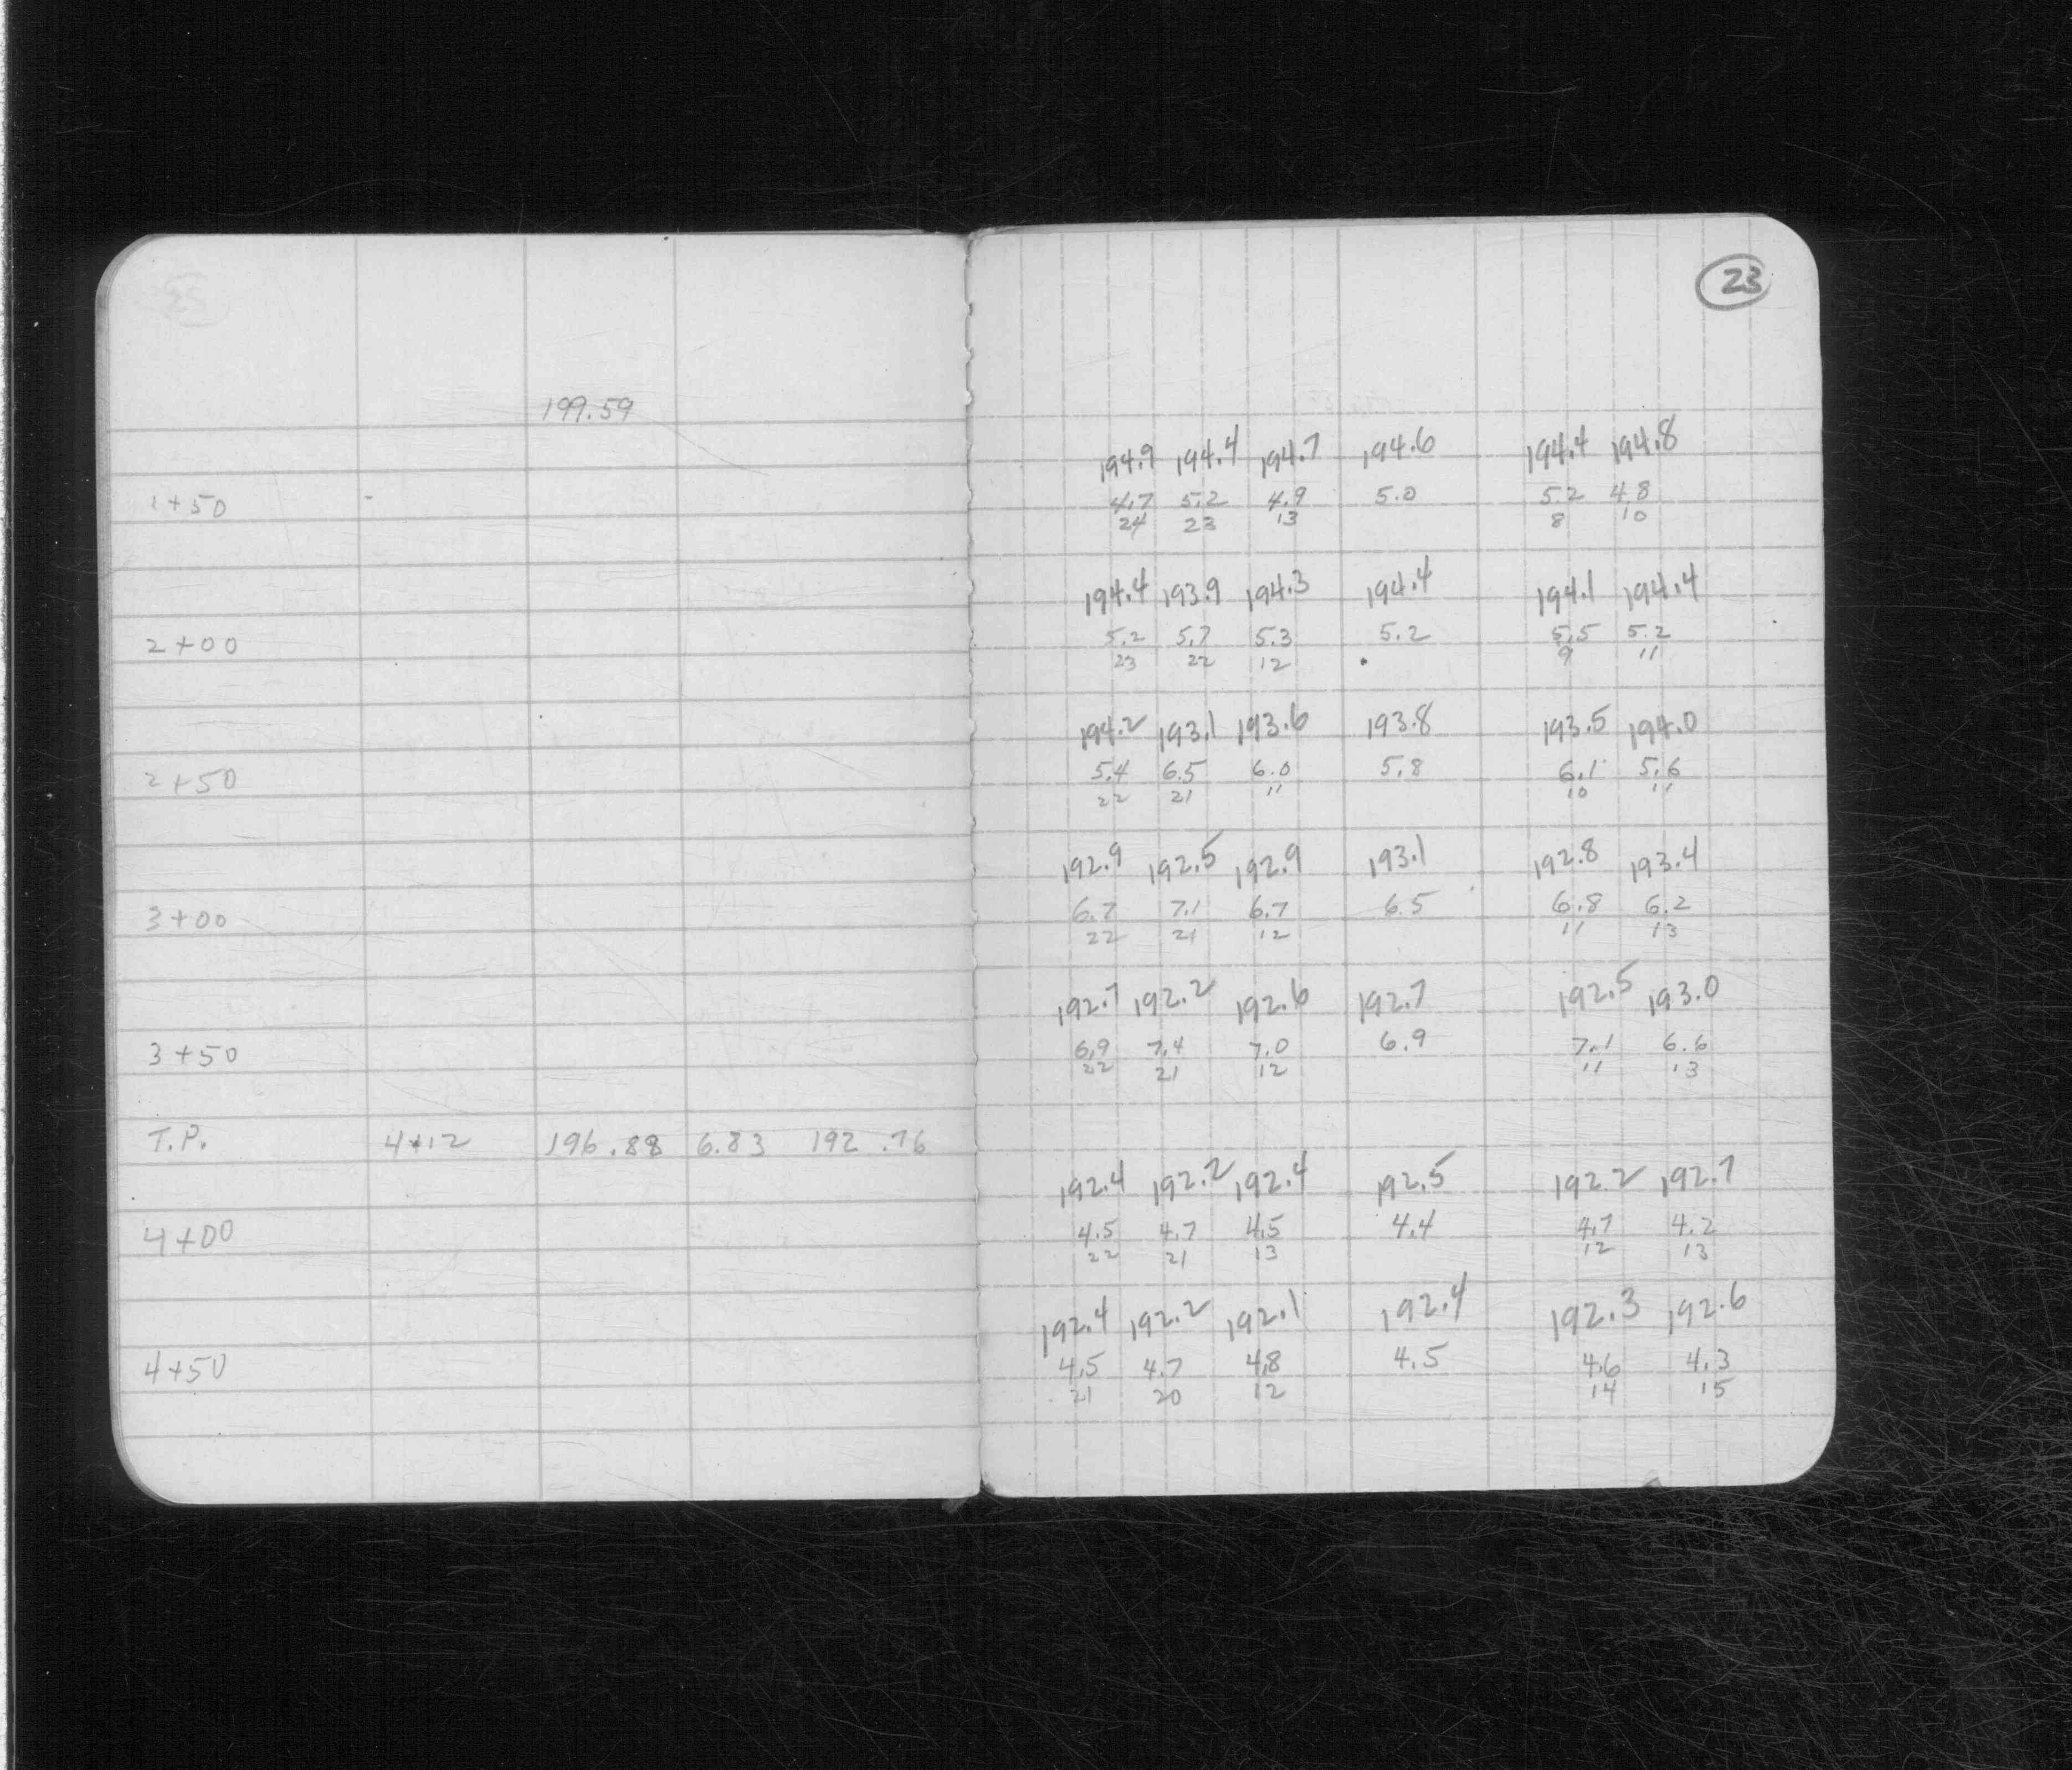 23
199.59
194.9 194.4 194.7 194.6 194.4 194.8
1+50 - 4.7 5.2 4.9 5.0 5.2 4.8
24 23 13 8 10
194.4 193.9 194.3 194.4 194.1 194.4
2+00 5.2 5.7 5.3 5.2 5.5 5.2
23 22 12 9 11
194.2 193.1 193.6 193.8 193.5 194.0
2+50 5.4 6.5 6.0 5.8 6.1 5.6
22 21 11 10 11
192.9 192.5 192.9 193.1 192.8 193.4
3+00 6.7 7.1 6.7 6.5 6.8 6.2
22 21 12 11 13
192.7 192.2 192.6 192.7 192.5 193.0
3+50 6.9 7.4 7.0 6.9 7.1 6.6
22 21 12 11 13
T.P. 4+12 196.88 6.83 192.76
192.4 192.2 192.4 192.5 192.2 192.7
4+00 4.5 4.7 4.5 4.4 4.7 4.2
22 21 13 12 13
192.4 192.2 192.1 192.4 192.3 192.6
4+50 4.5 4.7 4.8 4.5 4.6 4.3
21 20 12 14 15